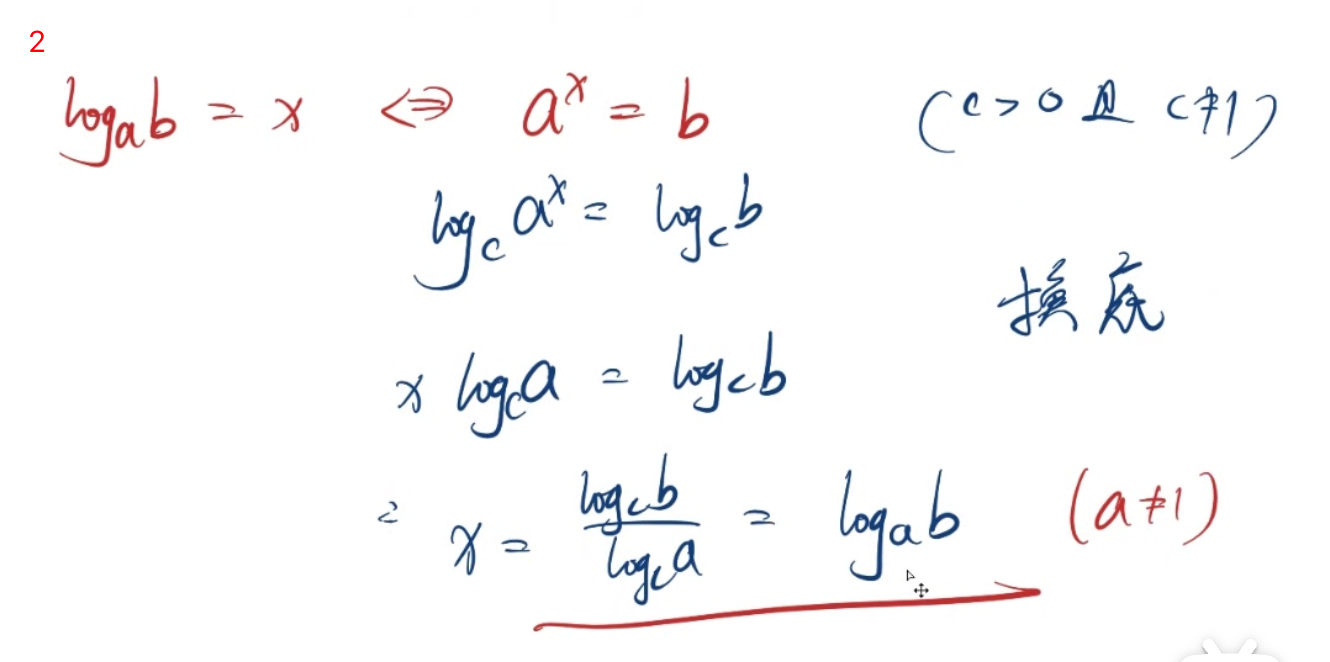 2
logₐb = x ⇔ aˣ = b (c > 0 且 c ≠ 1)
log_c aˣ = log_c b
换底
x log_c a = log_c b
= x = log_c b / log_c a = logₐb (a ≠ 1)